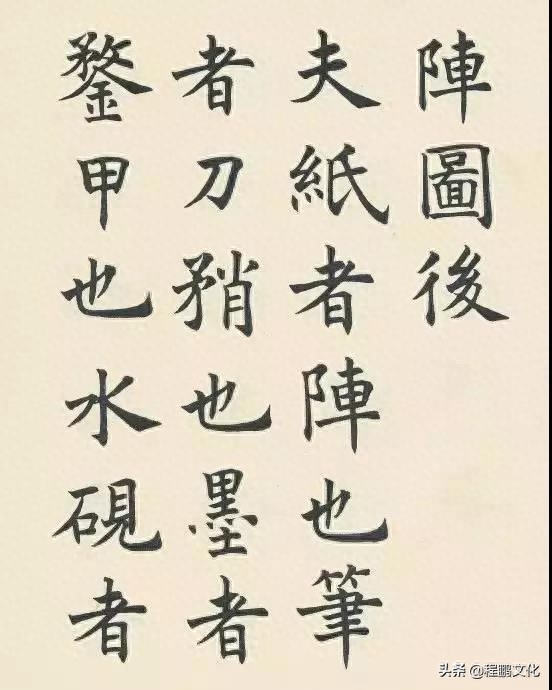 陣圖後
夫紙者陣也筆
者刀矟也墨者
鍪甲也水硯者
头条 @程鹏文化